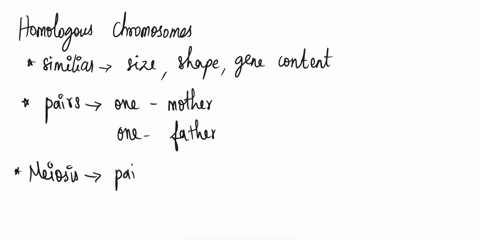 Homologous Chromosomes
* similias → size, shape, gene content
* pairs → one - mother
one - father
* Meiosis → pai